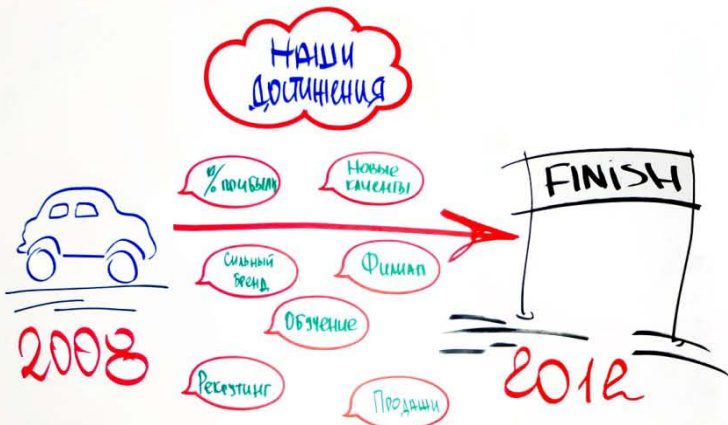 НАШИ
ДОСТИЖЕНИЯ
% прибыли
Новые
клиенты
FINISH
Сильный
бренд
Филиал
Обучение
2008
2012
Рекрутинг
Продажи